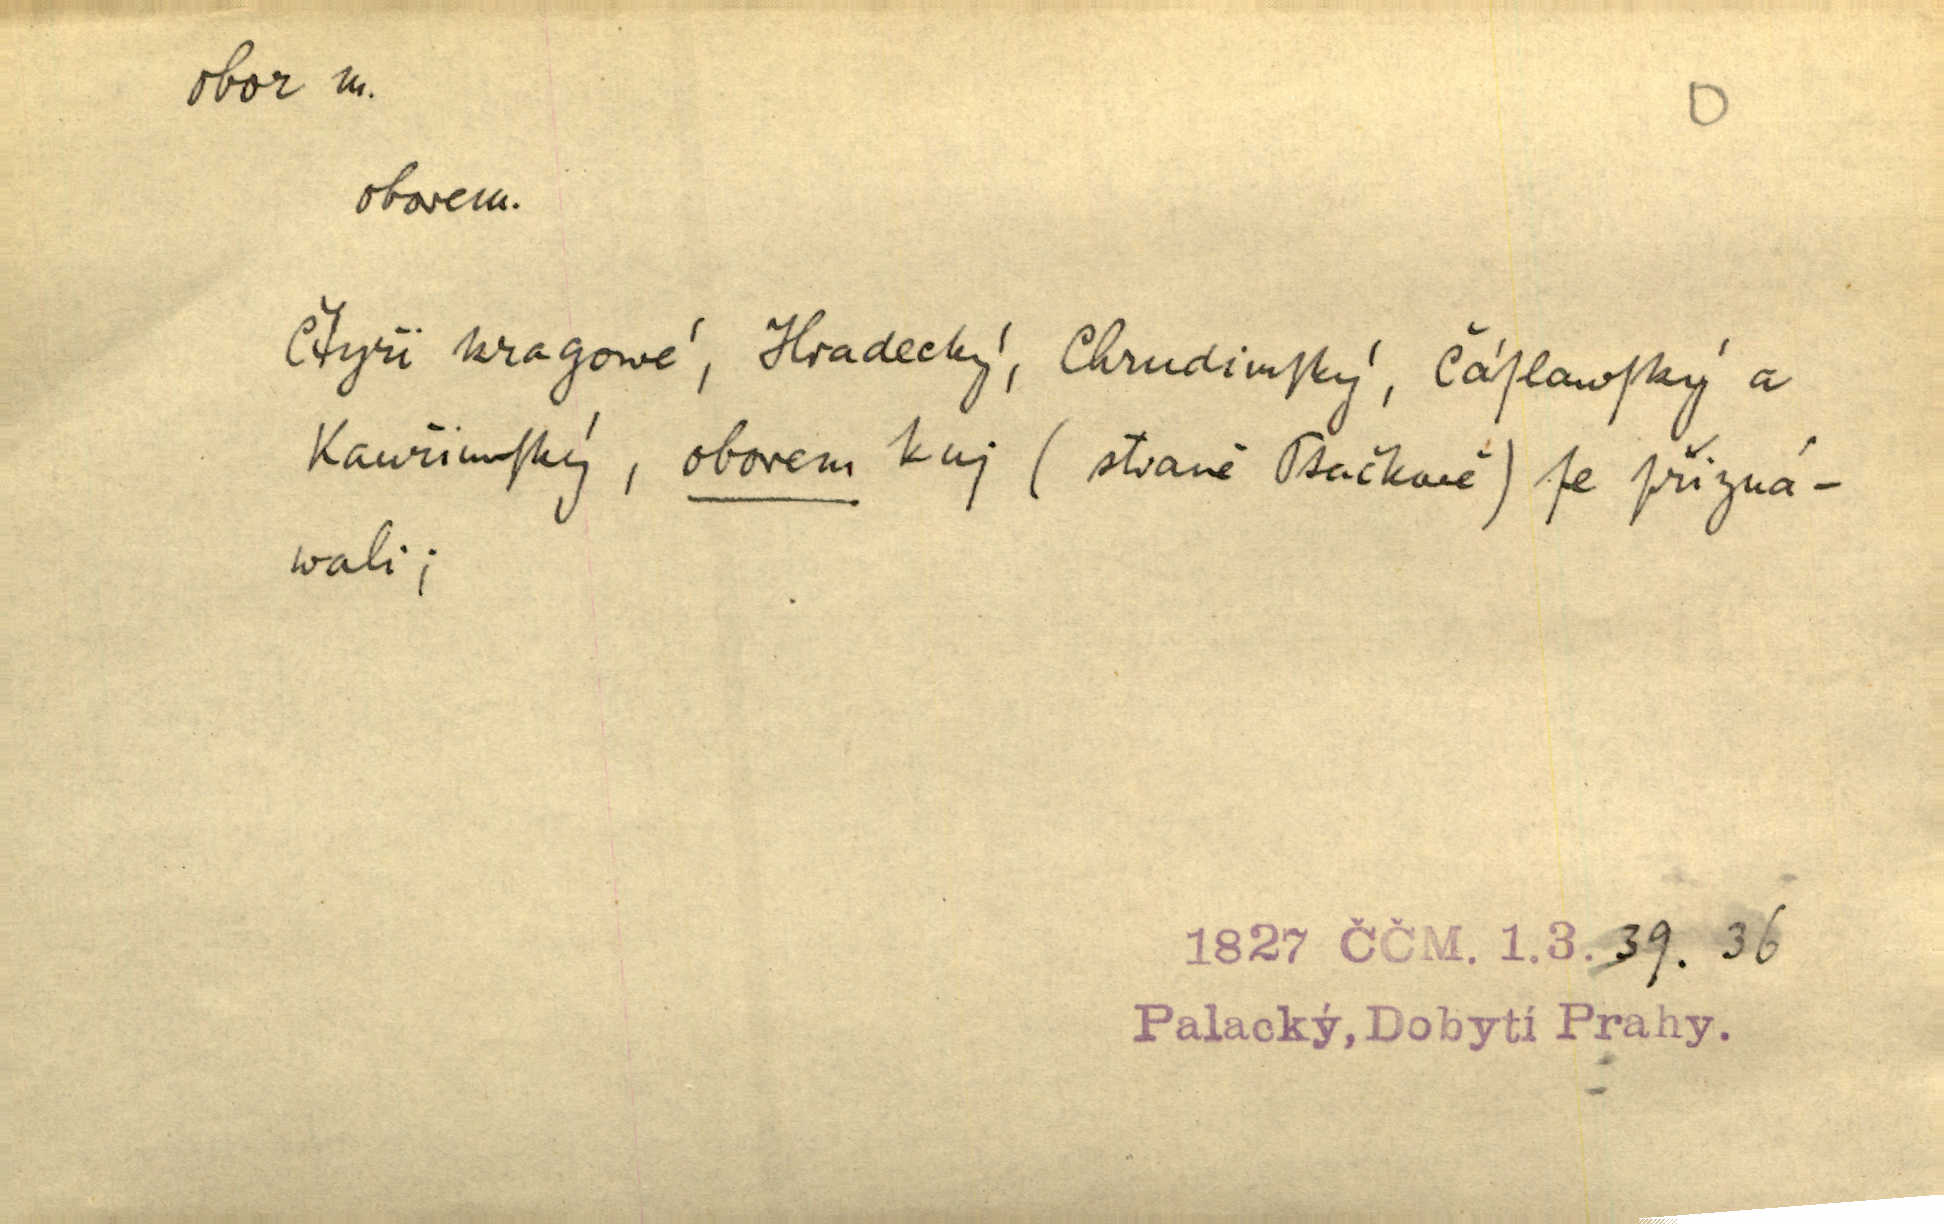 obor m.
O
oborem.
Čtyři kragowé, Hradecký, Chrudimſký, Čáſlawſký a
Kauřimſký, oborem k nj (straně Ptačkově) ſe přizná-
wali;
1827 ČČM. 1.3. 39. 36
Palacký, Dobytí Prahy.